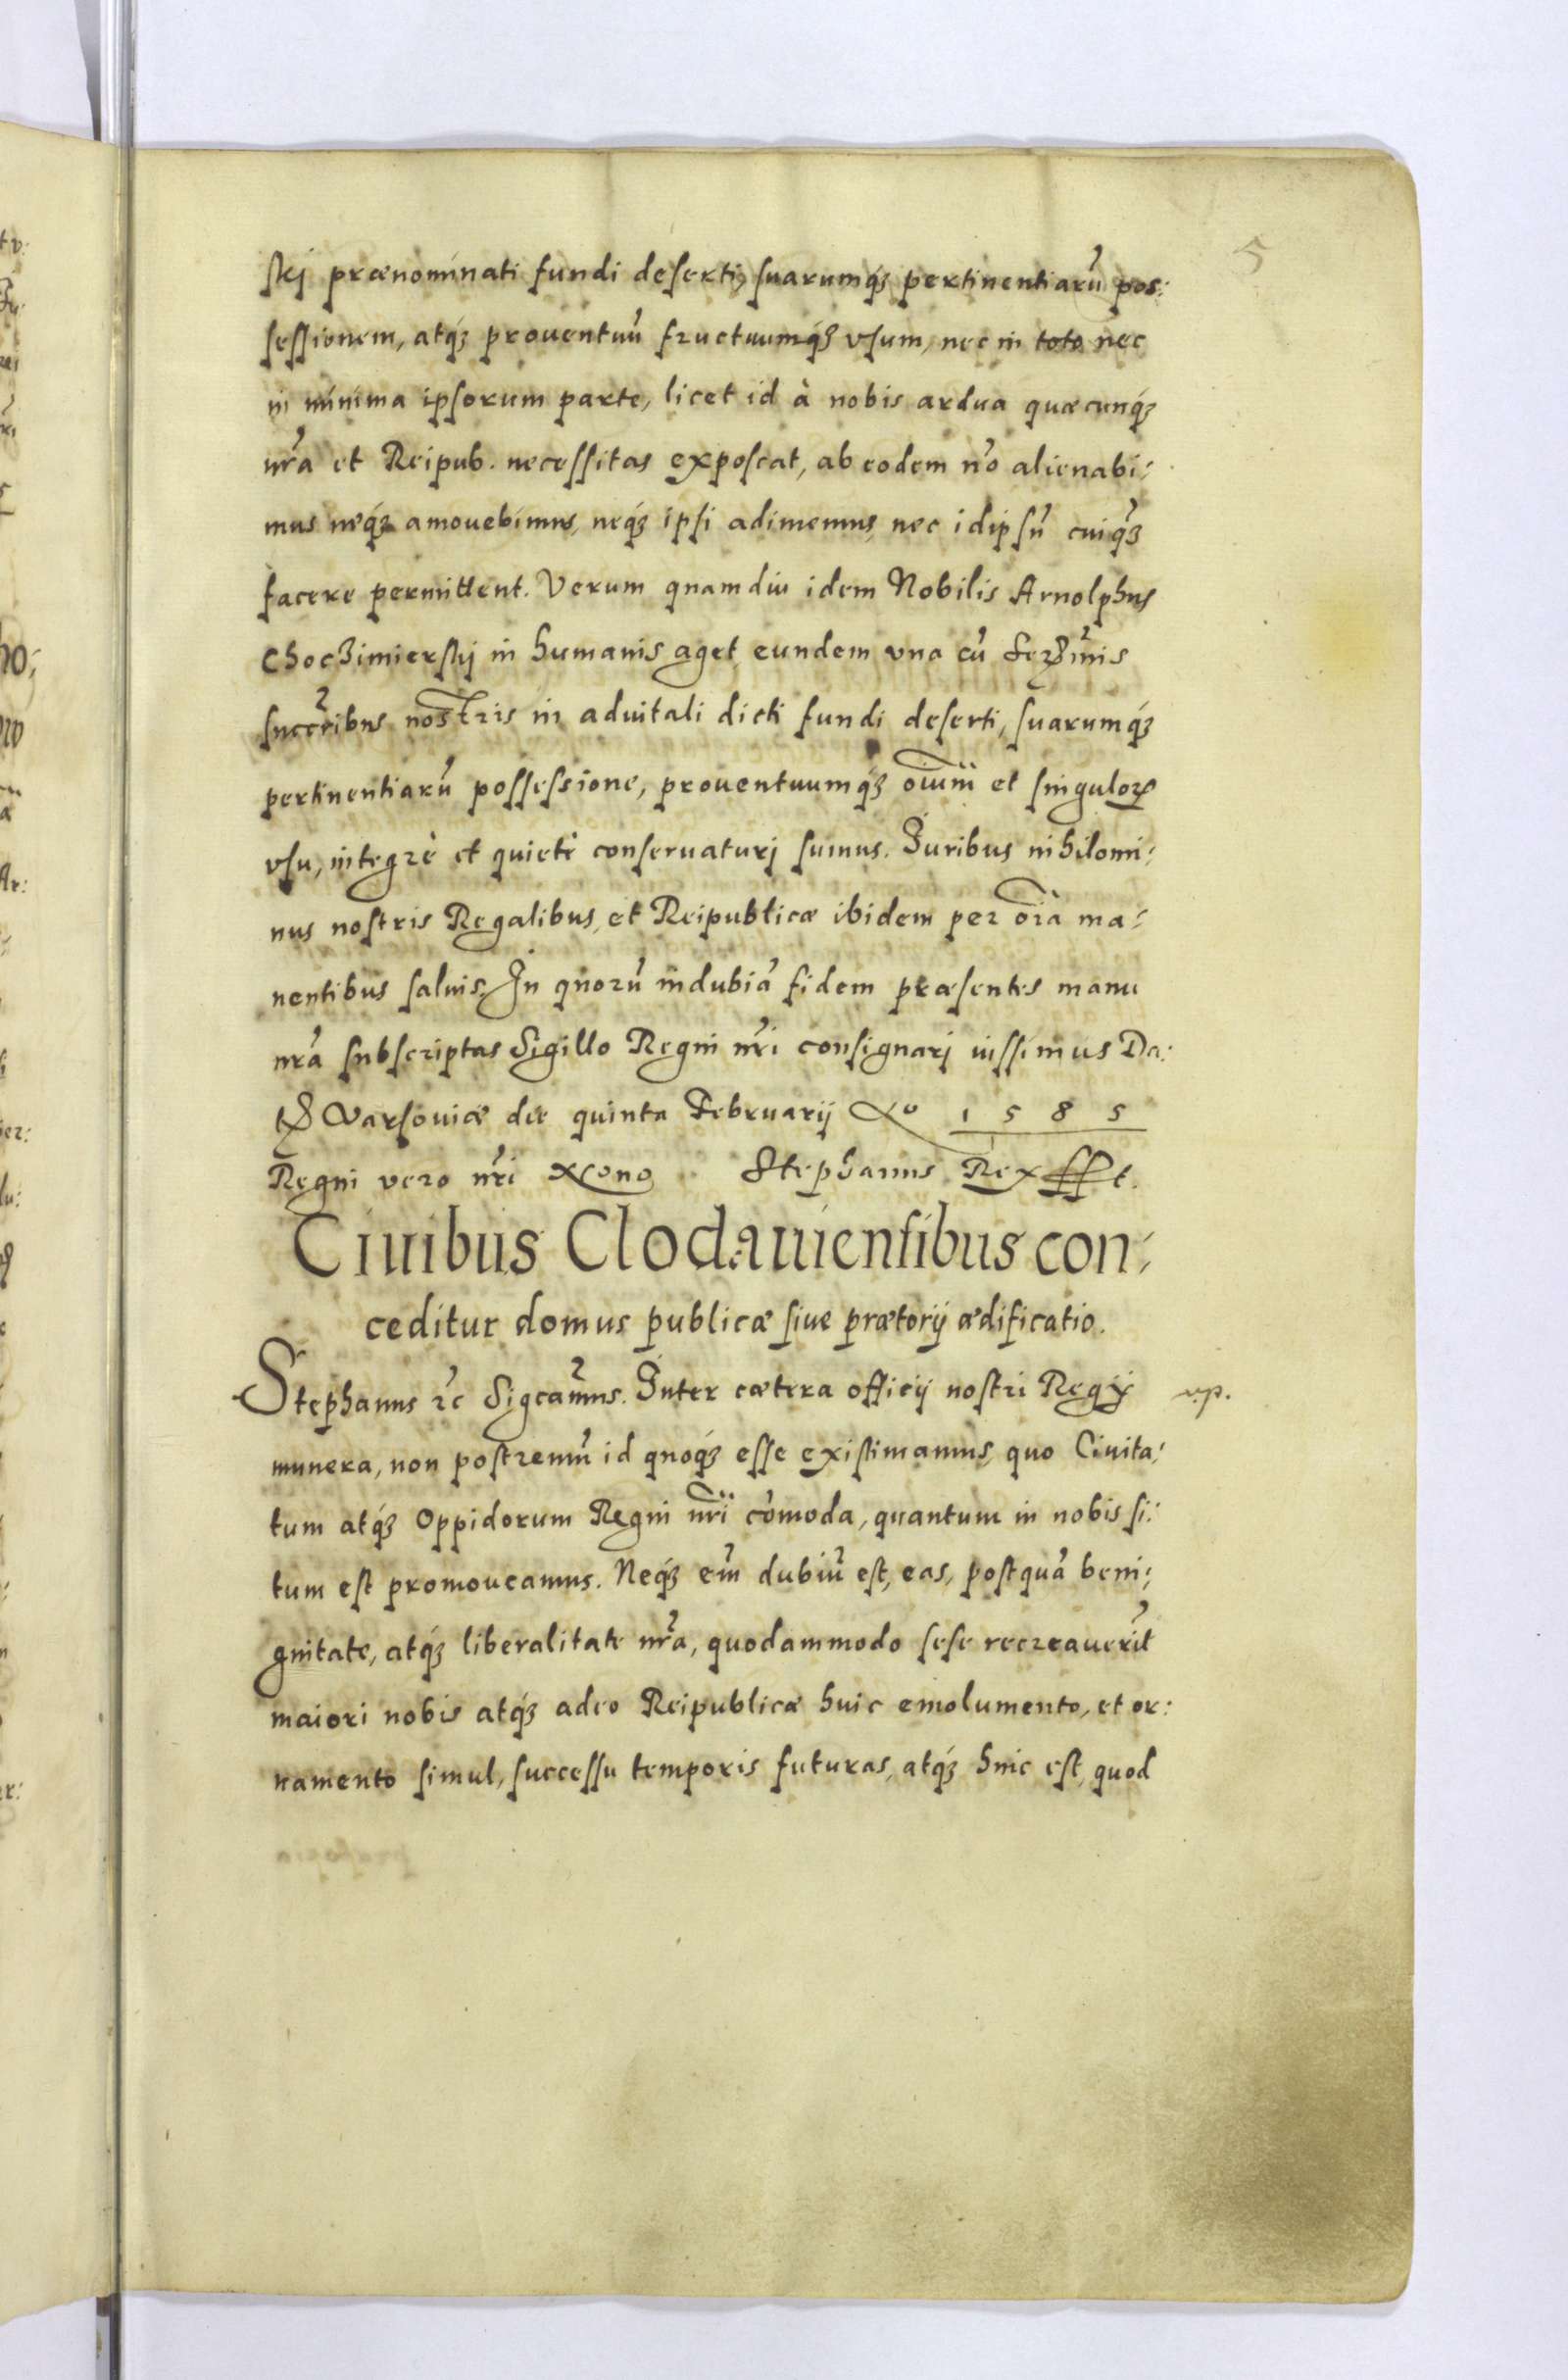 5
skj prænominati fundi deserti, suarumq́ꝫ pertinentiarũ pos:
sessionem, atq́ꝫ prouentuũ fructuumq́ꝫ vsum, nec in toto nec
in minima ipsorum parte, licet id à nobis ardua quæcunq́ꝫ
nr̃a et Reipub. necessitas exposcat, ab eodem nõ alienabi:
mus neq́ꝫ amouebimus, neq́ꝫ ipsi adimemus, nec idipsũ cuiq̃ꝫ
facere permittent. Verum quamdiu idem Nobilis Arnolphus
Choczimierskj in humanis aget eundem vna cũ Serꝫm̃is
succr̃ibus nostris in aduitali dicti fundi deserti, suarumq́ꝫ
pertinentiarũ possessione, prouentuumq́ꝫ oĩum et singuloꝝ
vsu, integrè et quietè conseruaturj sumus. Juribus nihilomi:
nus nostris Regalibus, et Reipublicæ ibidem per oĩa ma:
nentibus saluis. In quorũ indubiã fidem præsentes manu
nrã subscriptas Sigillo Regni nr̃i consignarj iussimus Da:
tꝫ Varsouiæ die quinta Februarij Aº 1585
Regni vero nr̃i Xº nº Stephanus Rex sst.
Ciuibus Clodauiensibus con:
ceditur domus publicæ siue prætorij ædificatio.
Stephanus ꝛc Sigcam̃us. Inter cætera officij nostri Regij
np.
munera, non postremũ id quoq́ꝫ esse existimamus, quo Ciuita:
tum atq́ꝫ Oppidorum Regni nr̃i cõmoda, quantum in nobis si:
tum est promoueamus. Neq́ꝫ em̃ dubiũ est, eas, postquã beni:
gnitate, atq́ꝫ liberalitate nr̃a, quodammodo sese recreauerĩt
maiori nobis atq́ꝫ adeo Reipublicæ huic emolumento, et or:
namento simul, successu temporis futuras, atq́ꝫ hinc est, quod